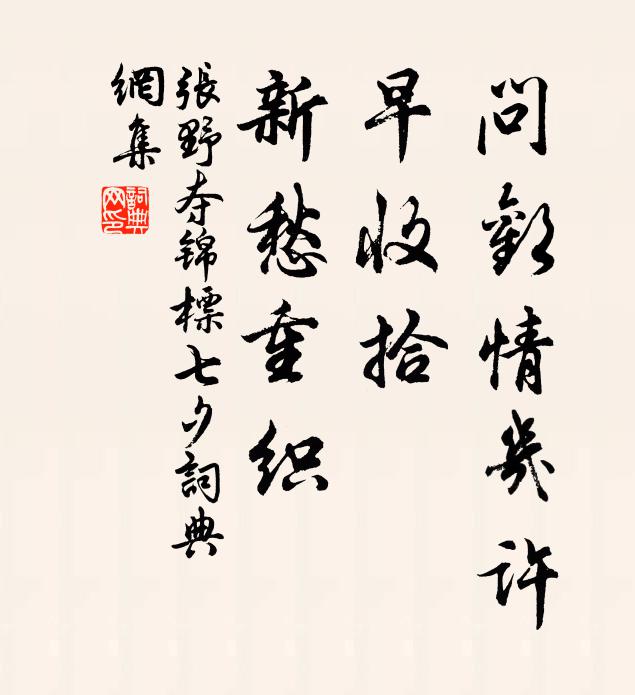 問歡情幾許
早收拾
新愁重织
張野夺锦標七夕詞典
網集
詞典網印